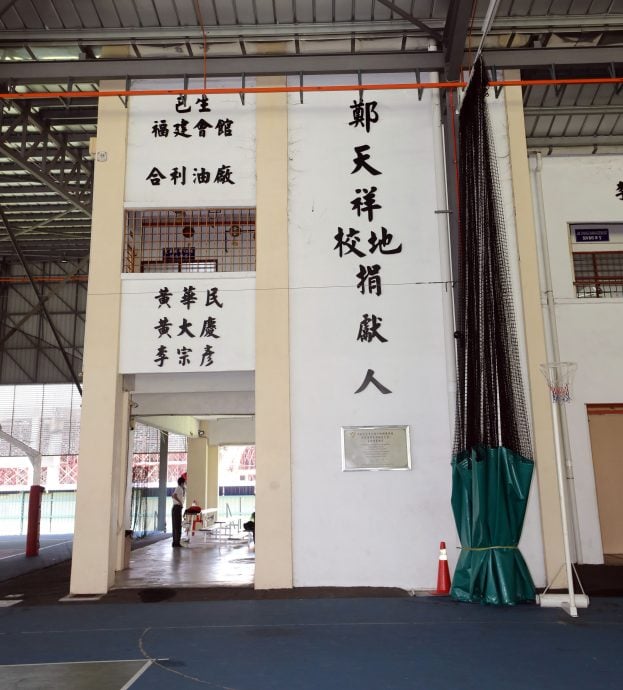 巴生
福建會館
合利油廠
黃華民
黃大慶
李宗彥
鄭天祥
校地
捐獻人